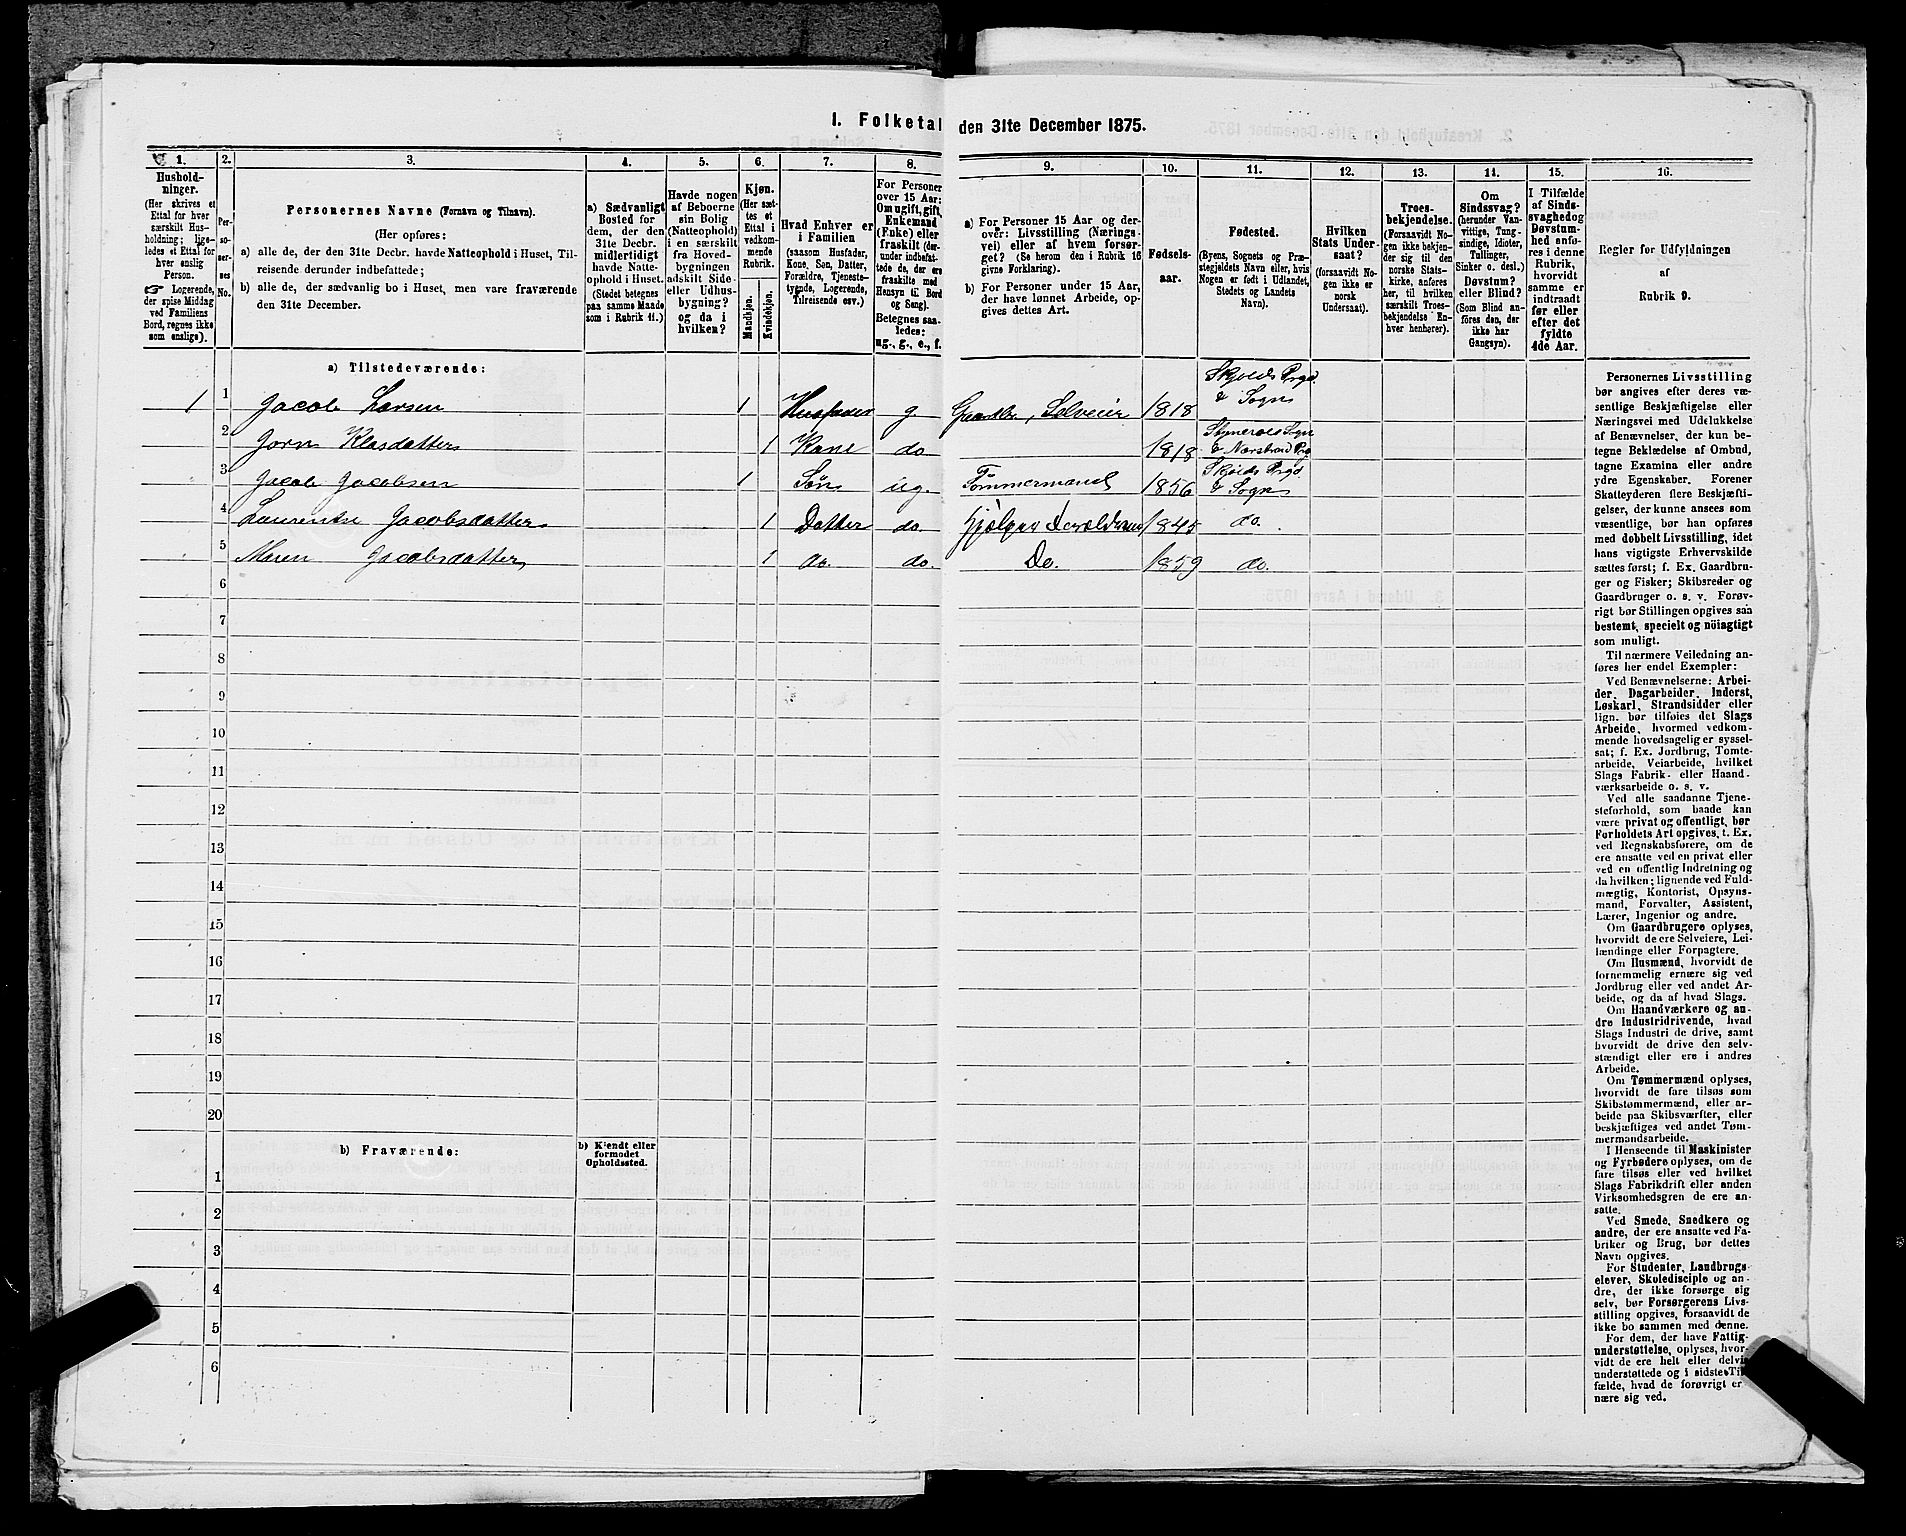 I. Folketal den 31te December 1875.
1. 2. 3. 4. 5. 6. 7. 8. 9. 10. 11. 12. 13. 14. 15. 16.
Hushold-
ninger.
(Her skrives et
Ettal for hver
særskilt Hus-
holdning; lige-
ledes et Ettal for
hver enslig
Person.
☞ Logerende,
der spise Middag
ved Familiens
Bord, regnes ikke
som enslige).
Per-
so-
ner-
nes
No.
Personernes Navne (Fornavn og Tilnavn).
(Her opføres:
a) alle de, der den 31te Decbr. havde Natteophold i Huset, Til-
reisende derunder indbefattede;
b) alle de, der sædvanlig bo i Huset, men vare fraværende
den 31te December.
a) Sædvanligt
Bosted for
dem, der den
31te Decbr.
midlertidigt
havde Natte-
ophold i Huset.
(Stedet betegnes
paa samme Maade
som i Rubrik 11.)
Havde nogen
af Beboerne
sin Bolig
(Natteophold)
i en særskilt
fra Hoved-
bygningen
adskilt Side-
eller Udhus-
bygning?
og da i
hvilken?
Kjøn.
(Her sæt-
tes et
Ettal i
vedkom-
mende
Rubrik.
Mandkjøn.
Kvindekjøn.
Hvad Enhver er
i Familien
(saasom Husfader,
Kone, Søn, Datter,
Forældre, Tjeneste-
tyende, Logerende,
Tilreisende osv.)
For Personer
over 15 Aar:
Om ugift, gift,
Enkemand
(Enke) eller
fraskilt (der-
under indbefat-
tede de, der ere
fraskilte med
Hensyn til Bord
og Seng).
Betegnes saa-
ledes:
ug., g., e., f.
a) For Personer 15 Aar og der-
over: Livsstilling (Nærings-
vei) eller af hvem forsør-
get? (Se herom den i Rubrik 16
givne Forklaring).
b) For Personer under 15 Aar,
der have lønnet Arbeide, op-
gives dettes Art.
Fødsels-
aar.
Fødested.
(Byens, Sognets og Præ-
stegjeldets Navn eller, hvis
Nogen er født i Udlandet,
Stedets og Landets
Navn).
Hvilken
Stats Under-
saat?
(forsaavidt No-
gen ikke er
norsk
Undersaat).
Troes-
bekjendelse.
(Forsaavidt No-
gen ikke bekjen-
der sig til den
norske Stats-
kirke, anføres
her, til hvilken
særskilt Troes-
bekjendelse En-
hver henhører).
Om
Sindssvag?
(herunder Van-
vittige, Tung-
sindige, Idioter,
Tullinger,
Sinker o. desl.)
Døvstum?
eller Blind?
(Som Blind an-
føres den, der
ikke har
Gangsyn).
I Tilfælde
af Sinds-
svaghed og
Døvstum-
hed anfø-
res i denne
Rubrik,
hvorvidt
samme er
indtraadt
før eller
efter det
fyldte
4de Aar.
Regler for Udfyldningen
af
Rubrik 9.
a) Tilstedeværende:
1 1 Jacob Larsen 1 Husfader g. Gaardbr, Selveier 1818 Skjolds Prgd. & Sogn
2 Jorn Klasdatter 1 Kone do 1818
3 Jacob Jacobsen 1 Søn ug. Tømmermand 1856 Skjolds Prgd. & Sogn
4 Jacobsdatter 1 Datter do. 1845 do.
5 Maren Jacobsdatter 1 do. do. Do. 1859 do.
6
7
8
9
10
11
12
13
14
15
16
17
18
19
20
b) Fraværende:
b) Kjendt eller
formodet
Opholdssted.
1
2
3
4
5
6
Personernes Livsstilling
bør angives efter deres væ-
sentlige Beskjæftigelse eller
Næringsvei med Udelukkelse
af Benævnelser, der kun be-
tegne Beklædelse af Ombud,
tagne Examina eller andre
ydre Egenskaber. Forener
Skatteyderen flere Beskjæfti-
gelser, der kunne ansees som
væsentlige, bør han opføres
med dobbelt Livsstilling, idet
hans vigtigste Erhvervskilde
sættes først; f. Ex. Gaardbru-
ger og Fisker; Skibsreder og
Gaardbruger o. s. v. Forøv-
rigt bør Stillingen opgives saa
bestemt, specielt og nöiagtigt
som muligt.
Til nærmere Veiledning an-
føres her endel Exempler:
Ved Benævnelserne: Arbei-
der, Dagarbeider, Inderst,
Løskarl, Strandsidder eller
lign. bør tilføies det Slags
Arbeide, hvormed vedkom-
mende hovedsagelig er syssel-
sat; f. Ex. Jordbrug, Tomte-
arbeide, Veiarbeide, hvilket
Slags Fabrik- eller Haand-
værksarbeide o. s. v.
Ved alle saadanne Tjene-
steforhold, som baade kan
være privat og offentligt, bør
Forholdets Art opgives, t. Ex.
ved Regnskabsførere, om de
ere ansatte ved en privat eller
ved en offentlig Indretning og
da hvilken; lignende ved Fuld-
mægtig, Kontorist, Opsyns-
mand, Forvalter, Assistent,
Lærer, Ingeniør og andre.
Om Gaardbrugere oplyses,
hvorvidt de ere Selveiere, Lei-
lændinge eller Forpagtere.
Om Husmænd, hvorvidt de
fornemmelig ernære sig ved
Jordbrug eller ved andet Ar-
beide, og da af hvad Slags.
Om Haandværkere og an-
dre Industridrivende, hvad
Slags Industri de drive, samt
hvorvidt de drive den selv-
stændigt eller ere i andres
Arbeide.
Om Tømmermænd oplyses,
hvorvidt de fare tilsøs som
Skibstømmermænd, eller ar-
beide paa Skibsværfter, eller
beskjæftiges ved andet Tøm-
mermandsarbeide.
I Henseende til Maskinister
og Fyrbødere oplyses, om de
fare tilsøs eller ved hvilket
Slags Fabrikdrift eller anden
Virksomhedsgren de ere an-
satte.
Ved Smede, Snedkere og
andre, der ere ansatte ved Fa-
briker og Brug, bør dettes
Navn opgives.
For Studenter, Landbrugs-
elever, Skoledisciple og an-
dre, der ikke forsørge sig
selv, bør Forsørgerens Livs-
stilling opgives, forsaavidt de
ikke bo sammen med denne.
For dem, der have Fattig-
understøttelse, oplyses, hvor-
vidt de ere helt eller delvis
understøttede og i sidste Til-
fælde, hvad de forøvrigt er-
nære sig ved.